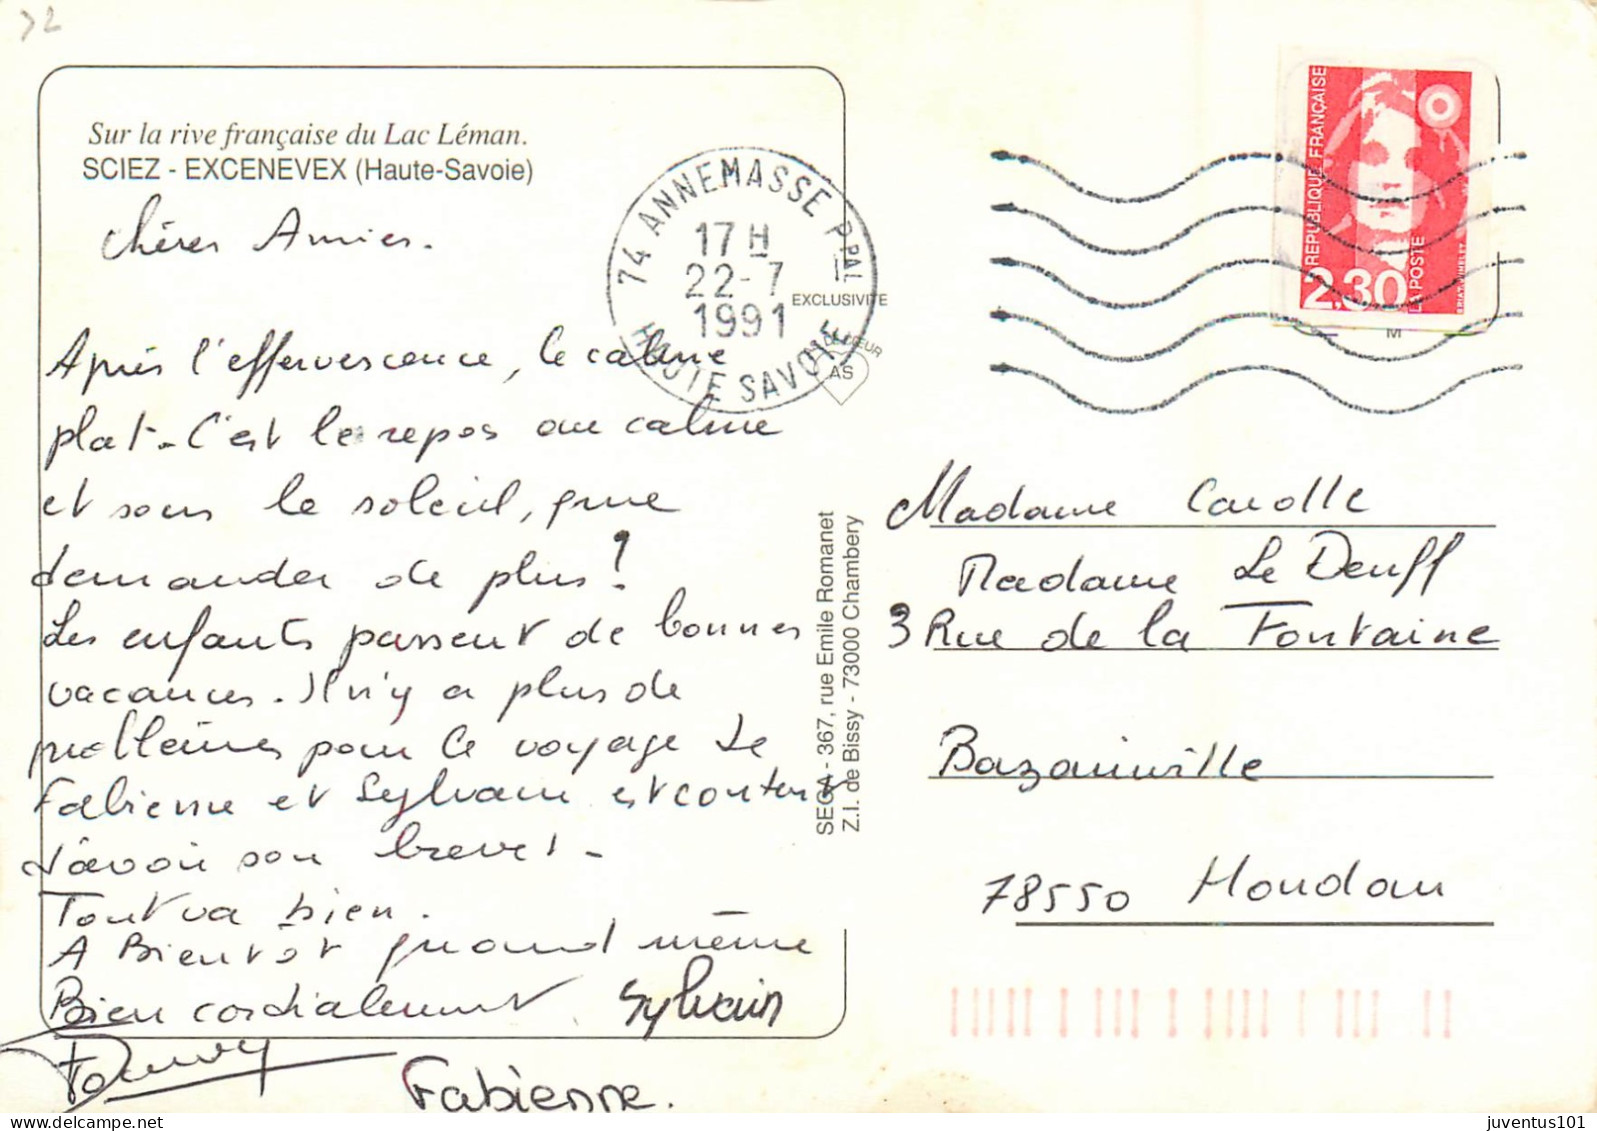 Sur la rive française du Lac Léman.
SCIEZ - EXCENEVEX (Haute-Savoie)
Chères Amies.
Après l'effervescence, le calme
plat. C'est le repos au calme
et sous le soleil, que
demander de plus !
Les enfants passent de bonnes
vacances. Il n'y a plus de
problèmes pour le voyage de
Fabienne et Sylvain est content
d'avoir son brevet.
Tout va bien.
A Bientôt quand même
Bien cordialement Sylvain
Fabienne.
74 ANNEMASSE PPAL
17 H
22-7
1991
HAUTE SAVOIE
EXCLUSIVITE
AS
SEGA - 367, rue Emile Romanet
Z.I. de Bissy - 73000 Chambery
REPUBLIQUE FRANÇAISE
2,30
LA POSTE
M
Madame Carolle
Madame Le Deuff
3 Rue de la Fontaine
Bazainville
78550 Houdan
juventus101